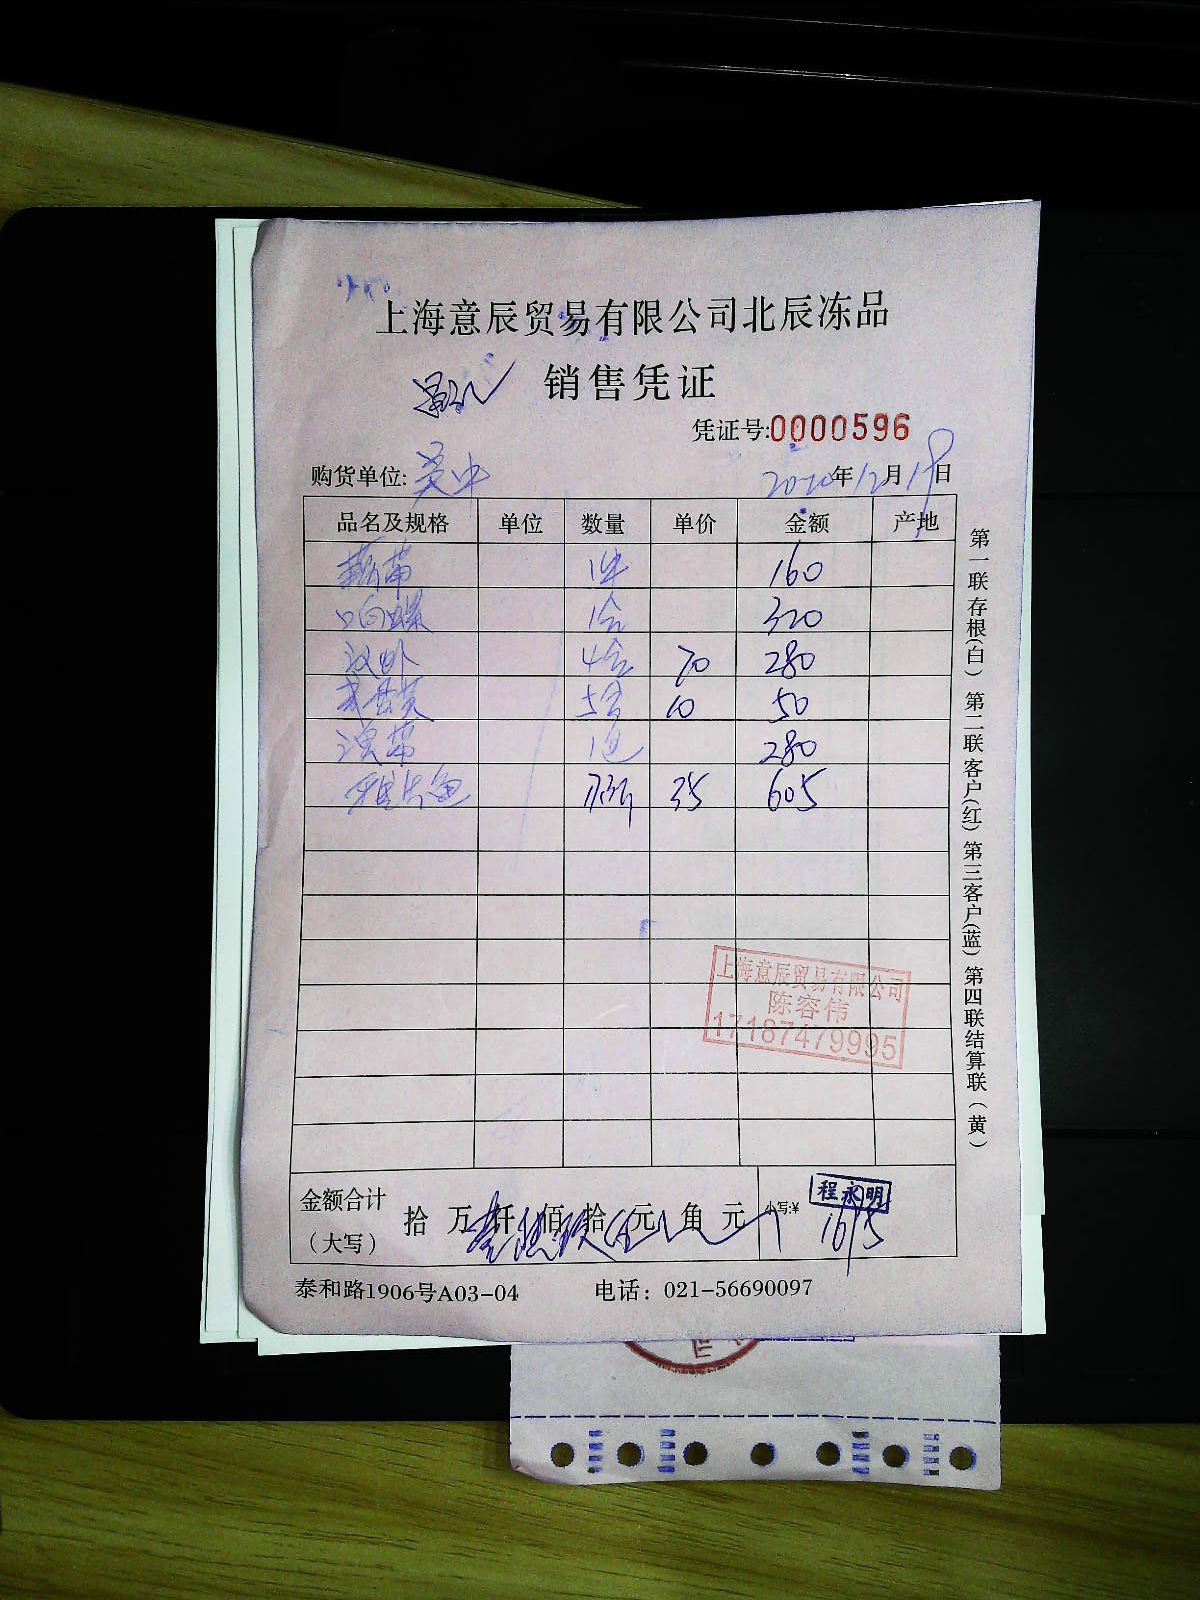 上海意辰贸易有限公司北辰冻品
销售凭证
凭证号:0000596
购货单位: 2020年12月19日
品名及规格 单位 数量 单价 金额 产地
160
响螺 1合 320
4合 70 280
5 10 50
澳带 1包 280
35 605
上海意辰贸易有限公司
陈容伟
17187479995
金额合计
(大写)
拾 万 仟 佰 拾 元 角 元 小写:¥ 1695
程永明
泰和路1906号A03-04 电话: 021-56690097
第一联存根(白) 第二联客户(红) 第三客户(蓝) 第四联结算联(黄)